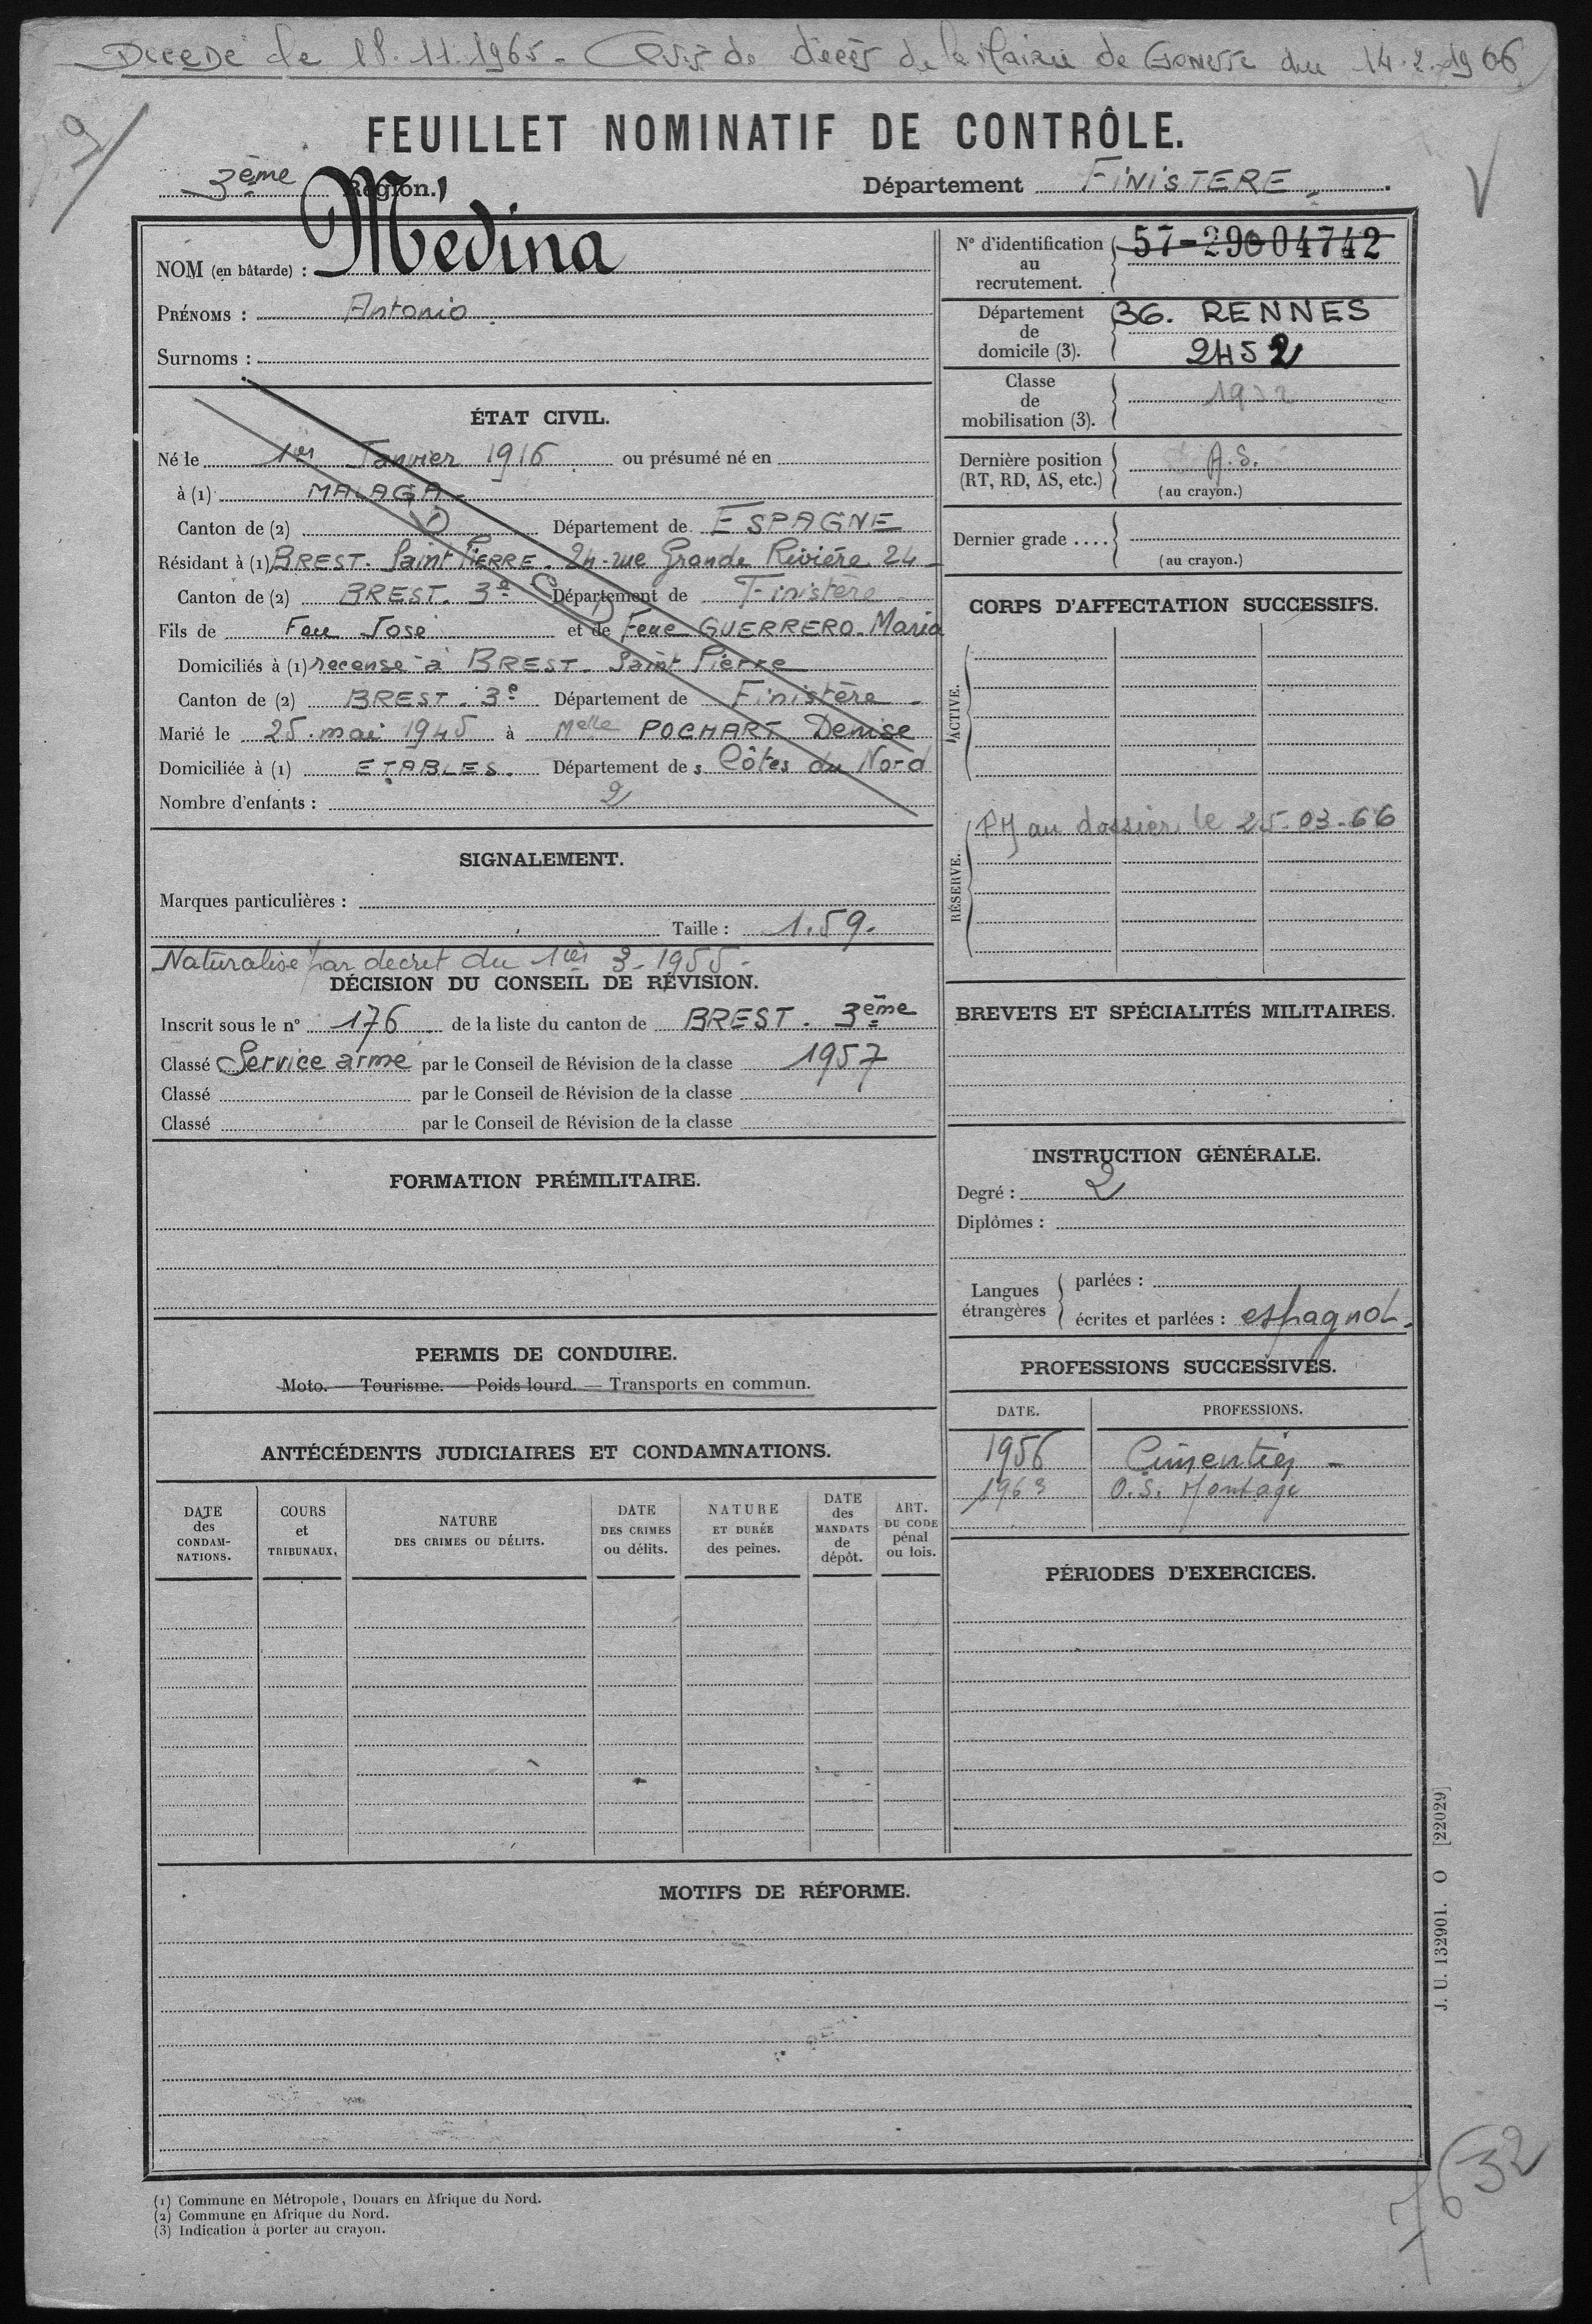 Décédé le 18.11.1965 - Avis de décès de la Mairie de Gonesse du 14.2.1966
FEUILLET NOMINATIF DE CONTRÔLE.
3ème Région.
Département FINISTERE
NOM (en bâtarde) : Medina
PRÉNOMS : Antonio
Surnoms :
ÉTAT CIVIL.
Né le 1er Janvier 1916 ou présumé né en
à (1) MALAGA
Canton de (2) Département de ESPAGNE
Résidant à (1) BREST. Saint PIERRE. 24 rue Grande Rivière 24
Canton de (2) BREST. 3e Département de Finistère
Fils de Feu José et de Feue GUERRERO. Maria
Domiciliés à (1) recensé à BREST. Saint Pierre
Canton de (2) BREST. 3e Département de Finistère
Marié le 25. mai 1945 à Melle POCHART Denise
Domiciliée à (1) ETABLES. Département des Côtes du Nord
Nombre d'enfants : 2
SIGNALEMENT.
Marques particulières :
Taille : 1.59.
Naturalisé par décret du 1er 3-1955-
DÉCISION DU CONSEIL DE RÉVISION.
Inscrit sous le n° 176 de la liste du canton de BREST. 3ème
Classé Service armé par le Conseil de Révision de la classe 1957
Classé par le Conseil de Révision de la classe
Classé par le Conseil de Révision de la classe
FORMATION PRÉMILITAIRE.
PERMIS DE CONDUIRE.
Moto. — Tourisme. — Poids lourd. — Transports en commun.
ANTÉCÉDENTS JUDICIAIRES ET CONDAMNATIONS.
DATE des CONDAM-NATIONS.
COURS et TRIBUNAUX.
NATURE DES CRIMES OU DÉLITS.
DATE DES CRIMES ou délits.
NATURE ET DURÉE des peines.
DATE des MANDATS de dépôt.
ART. DU CODE pénal ou lois.
N° d'identification au recrutement. 57-29004742
Département de domicile (3). 36. RENNES
2452
Classe de mobilisation (3).
Dernière position (RT, RD, AS, etc.) A.S.
(au crayon.)
Dernier grade ....
(au crayon.)
CORPS D'AFFECTATION SUCCESSIFS.
ACTIVE.
RÉSERVE.
PM au dossier le 25-03-66
BREVETS ET SPÉCIALITÉS MILITAIRES.
INSTRUCTION GÉNÉRALE.
Degré : 2
Diplômes :
Langues étrangères
parlées :
écrites et parlées : espagnol.
PROFESSIONS SUCCESSIVES.
DATE. PROFESSIONS.
1956 Cimentier -
1963 O.S. Montage
PÉRIODES D'EXERCICES.
MOTIFS DE RÉFORME.
J. U. 132901. O [22029]
(1) Commune en Métropole, Douars en Afrique du Nord.
(2) Commune en Afrique du Nord.
(3) Indication à porter au crayon.
7632